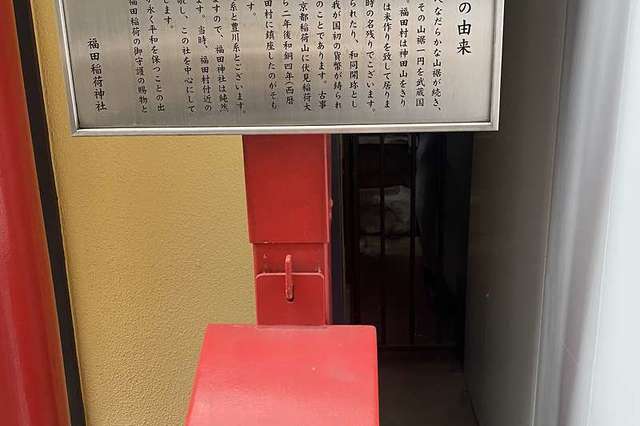 の由来
なだらかな山裾が続き、
その山裾一円を武蔵国
福田村は神田山をきり
は米作りを致して居りま
時の名残りでございます。
られたり、和同開珎とし
我が国初の貨幣が鋳られ
のことであります。古事
京都稲荷山に伏見稲荷大
ら二年後和銅四年(西暦
田村に鎮座したのがそも
す。
系と豊川系とございます。
ますので、福田神社は純然
ます。当時、福田村付近の
敬し、この社を中心にして
します。
り永く平和を保つことの出
福田稲荷の御守護の賜物と
福田稲荷神社